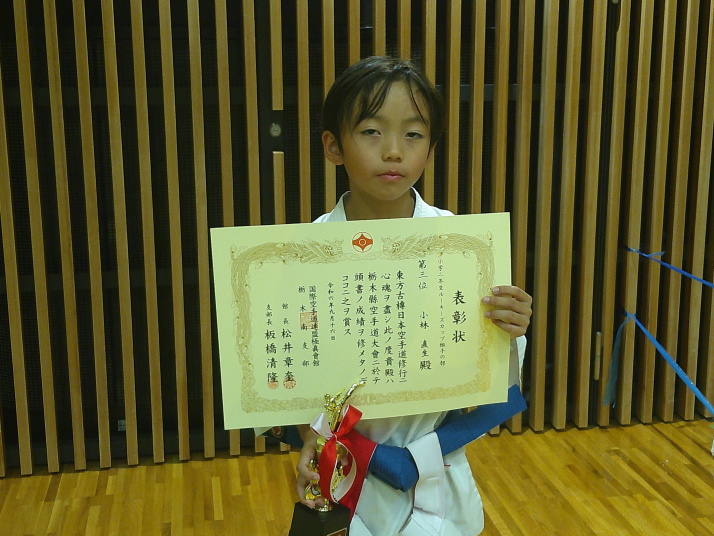 表彰状
小学二年生ルーキーズカップ組手の部
第三位 小林 直生 殿
東方古傳日本空手道修行ニ
心魂ヲ盡シ此ノ度貴殿ハ
栃木縣空手道大會ニ於テ
頭書ノ成績ヲ修メタノデ
ココニ之ヲ賞ス
令和六年九月十六日
国際空手道連盟極真會館
栃木南支部
館長 松井章奎
支部長 板橋清隆